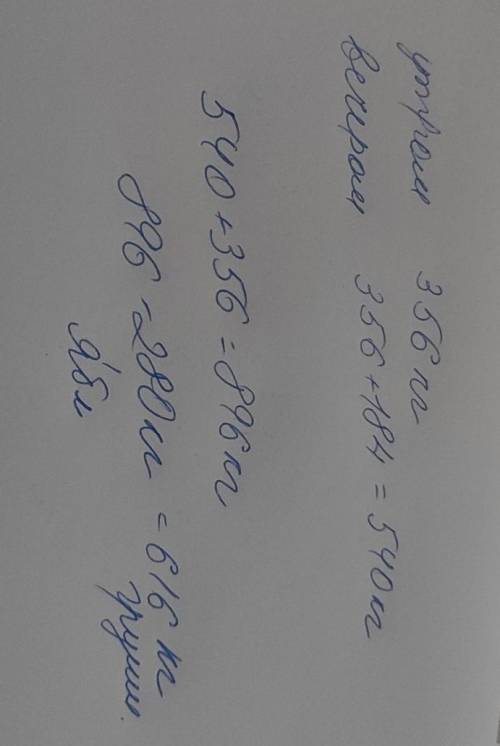 утром 356 кг
вечером 356+184 = 540 кг
540+356 = 896 кг
896 - 280 кг = 616 кг
ябл груши